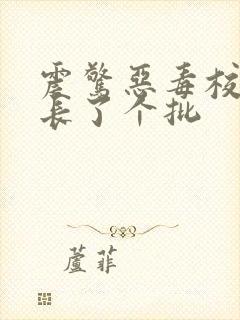 震驚惡毒校
長了个批
蘆菲